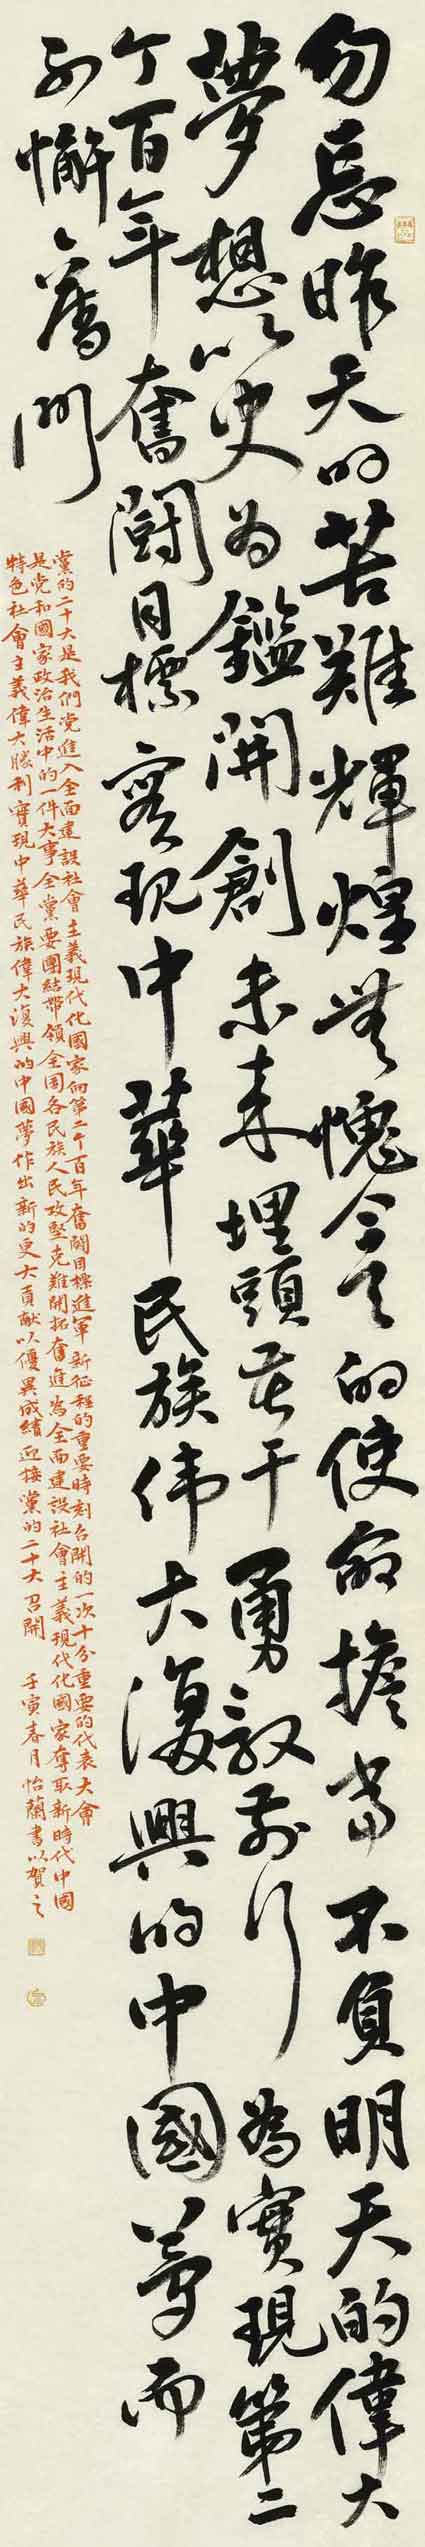 勿忘昨天的苦難輝煌無愧今天的使命擔當不負明天的偉大
夢想以史为鑑開創未来埋頭苦干勇毅前行為實現第二
个百年奮鬪目標實现中華民族伟大復興的中國夢而
不懈奮鬥
黨的二十大是我們党進入全面建設社會主義現代化國家向第二个百年奮鬪目標進軍新征程的重要時刻召開的一次十分重要的代表大會
是党和國家政治生活中的一件大事全黨要團結帶領全国各民族人民攻堅克難開拓奮進為全面建設社會主義現代化國家奪取新時代中國
特色社會主義偉大勝利實現中華民族偉大復興的中國夢作出新的更大貢献以優異成績迎接黨的二十大召開 壬寅春月怡蘭書以贺之